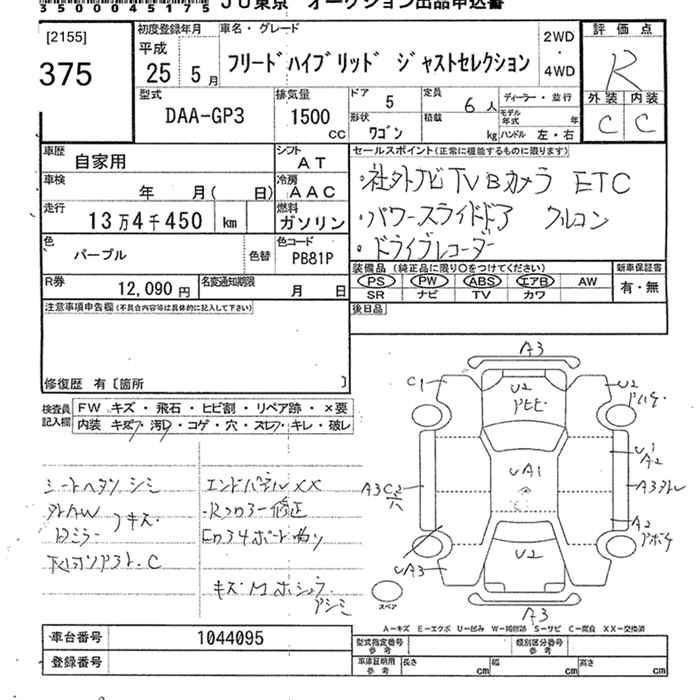 35000045175
JU東京 オークション出品申込書
[2155]
375
初度登録年月
平成
25 5月
車名・グレード
フリードハイブリッド ジャストセレクション
2WD
・
4WD
評価点
R
外装 内装
C C
型式
DAA-GP3
排気量
1500
CC
ドア
5
定員
6人
形状
ワゴン
積載
kg
ディーラー・並行
モデル年式 年
ハンドル 左・右
車歴
自家用
シフト
AT
車検
年 月( 日)
冷房
AAC
走行
13万4千450 km
燃料
ガソリン
色
パープル
色替
色コード
PB81P
R券
12,090円
名変通知期限
月 日
セールスポイント(正常に機能するものに限ります)
・社外ナビ TV Bカメラ ETC
・パワースライドドア クルコン
・ドライブレコーダー
装備品(純正品に限り○をつけてください)
PS PW ABS エアB AW
SR ナビ TV カワ
新車保証書
有・無
後日品
注意事項申告欄(不具合内容等は具体的に記入して下さい)
修復歴 有〔箇所 〕
検査員記入欄
FW キズ・飛石・ヒビ割・リペア跡・×要
内装 キズ・汚レ・コゲ・穴・スレ・キレ・破レ
シートヘタリ シミ
外AW キズ
Dミラー
エンドパネルXX
キズM
A3
C1
U2
U2
UA1
A2
A3
A2
UA3
U2
A3
スペア
A―キズ E―エクボ U―凹み W―補修跡 S―サビ C―腐食 XX―交換済
車台番号 1044095
登録番号
型式指定番号
参考
類別区分番号
参考
車庫証明用
参考
長さ cm
幅 cm
高さ cm